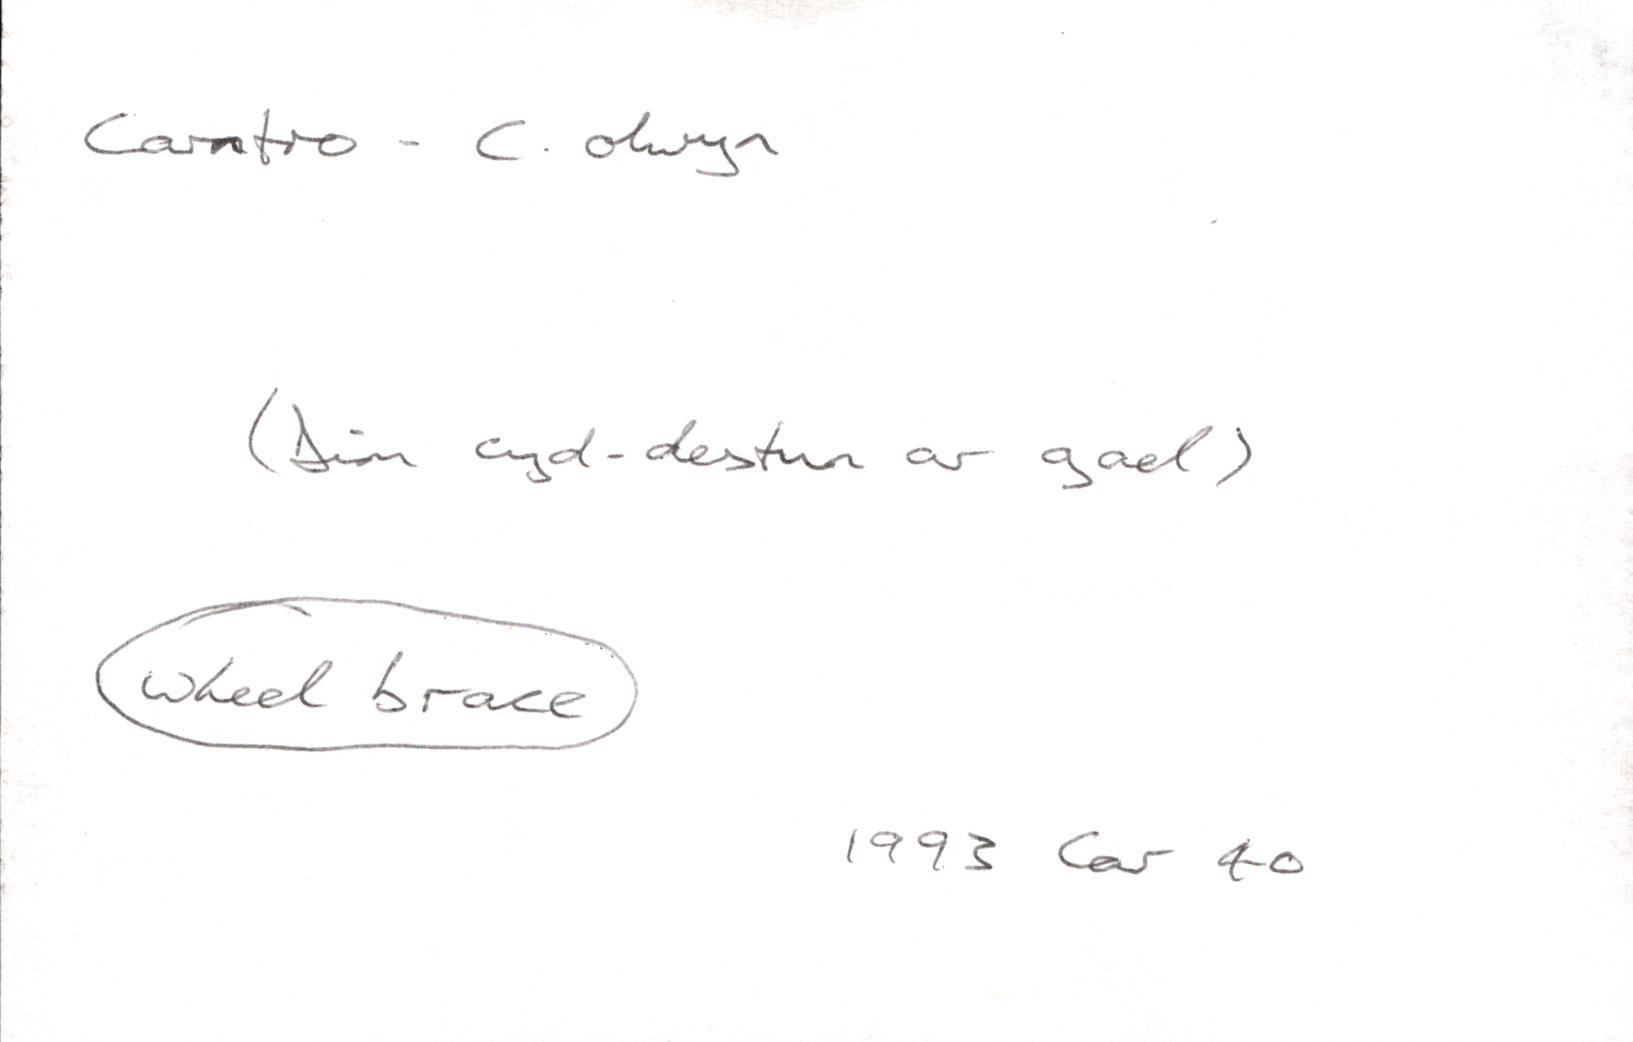 Carntro - C. olwyn
(Dim cyd-destun ar gael)
wheel brace
1993 Car 40